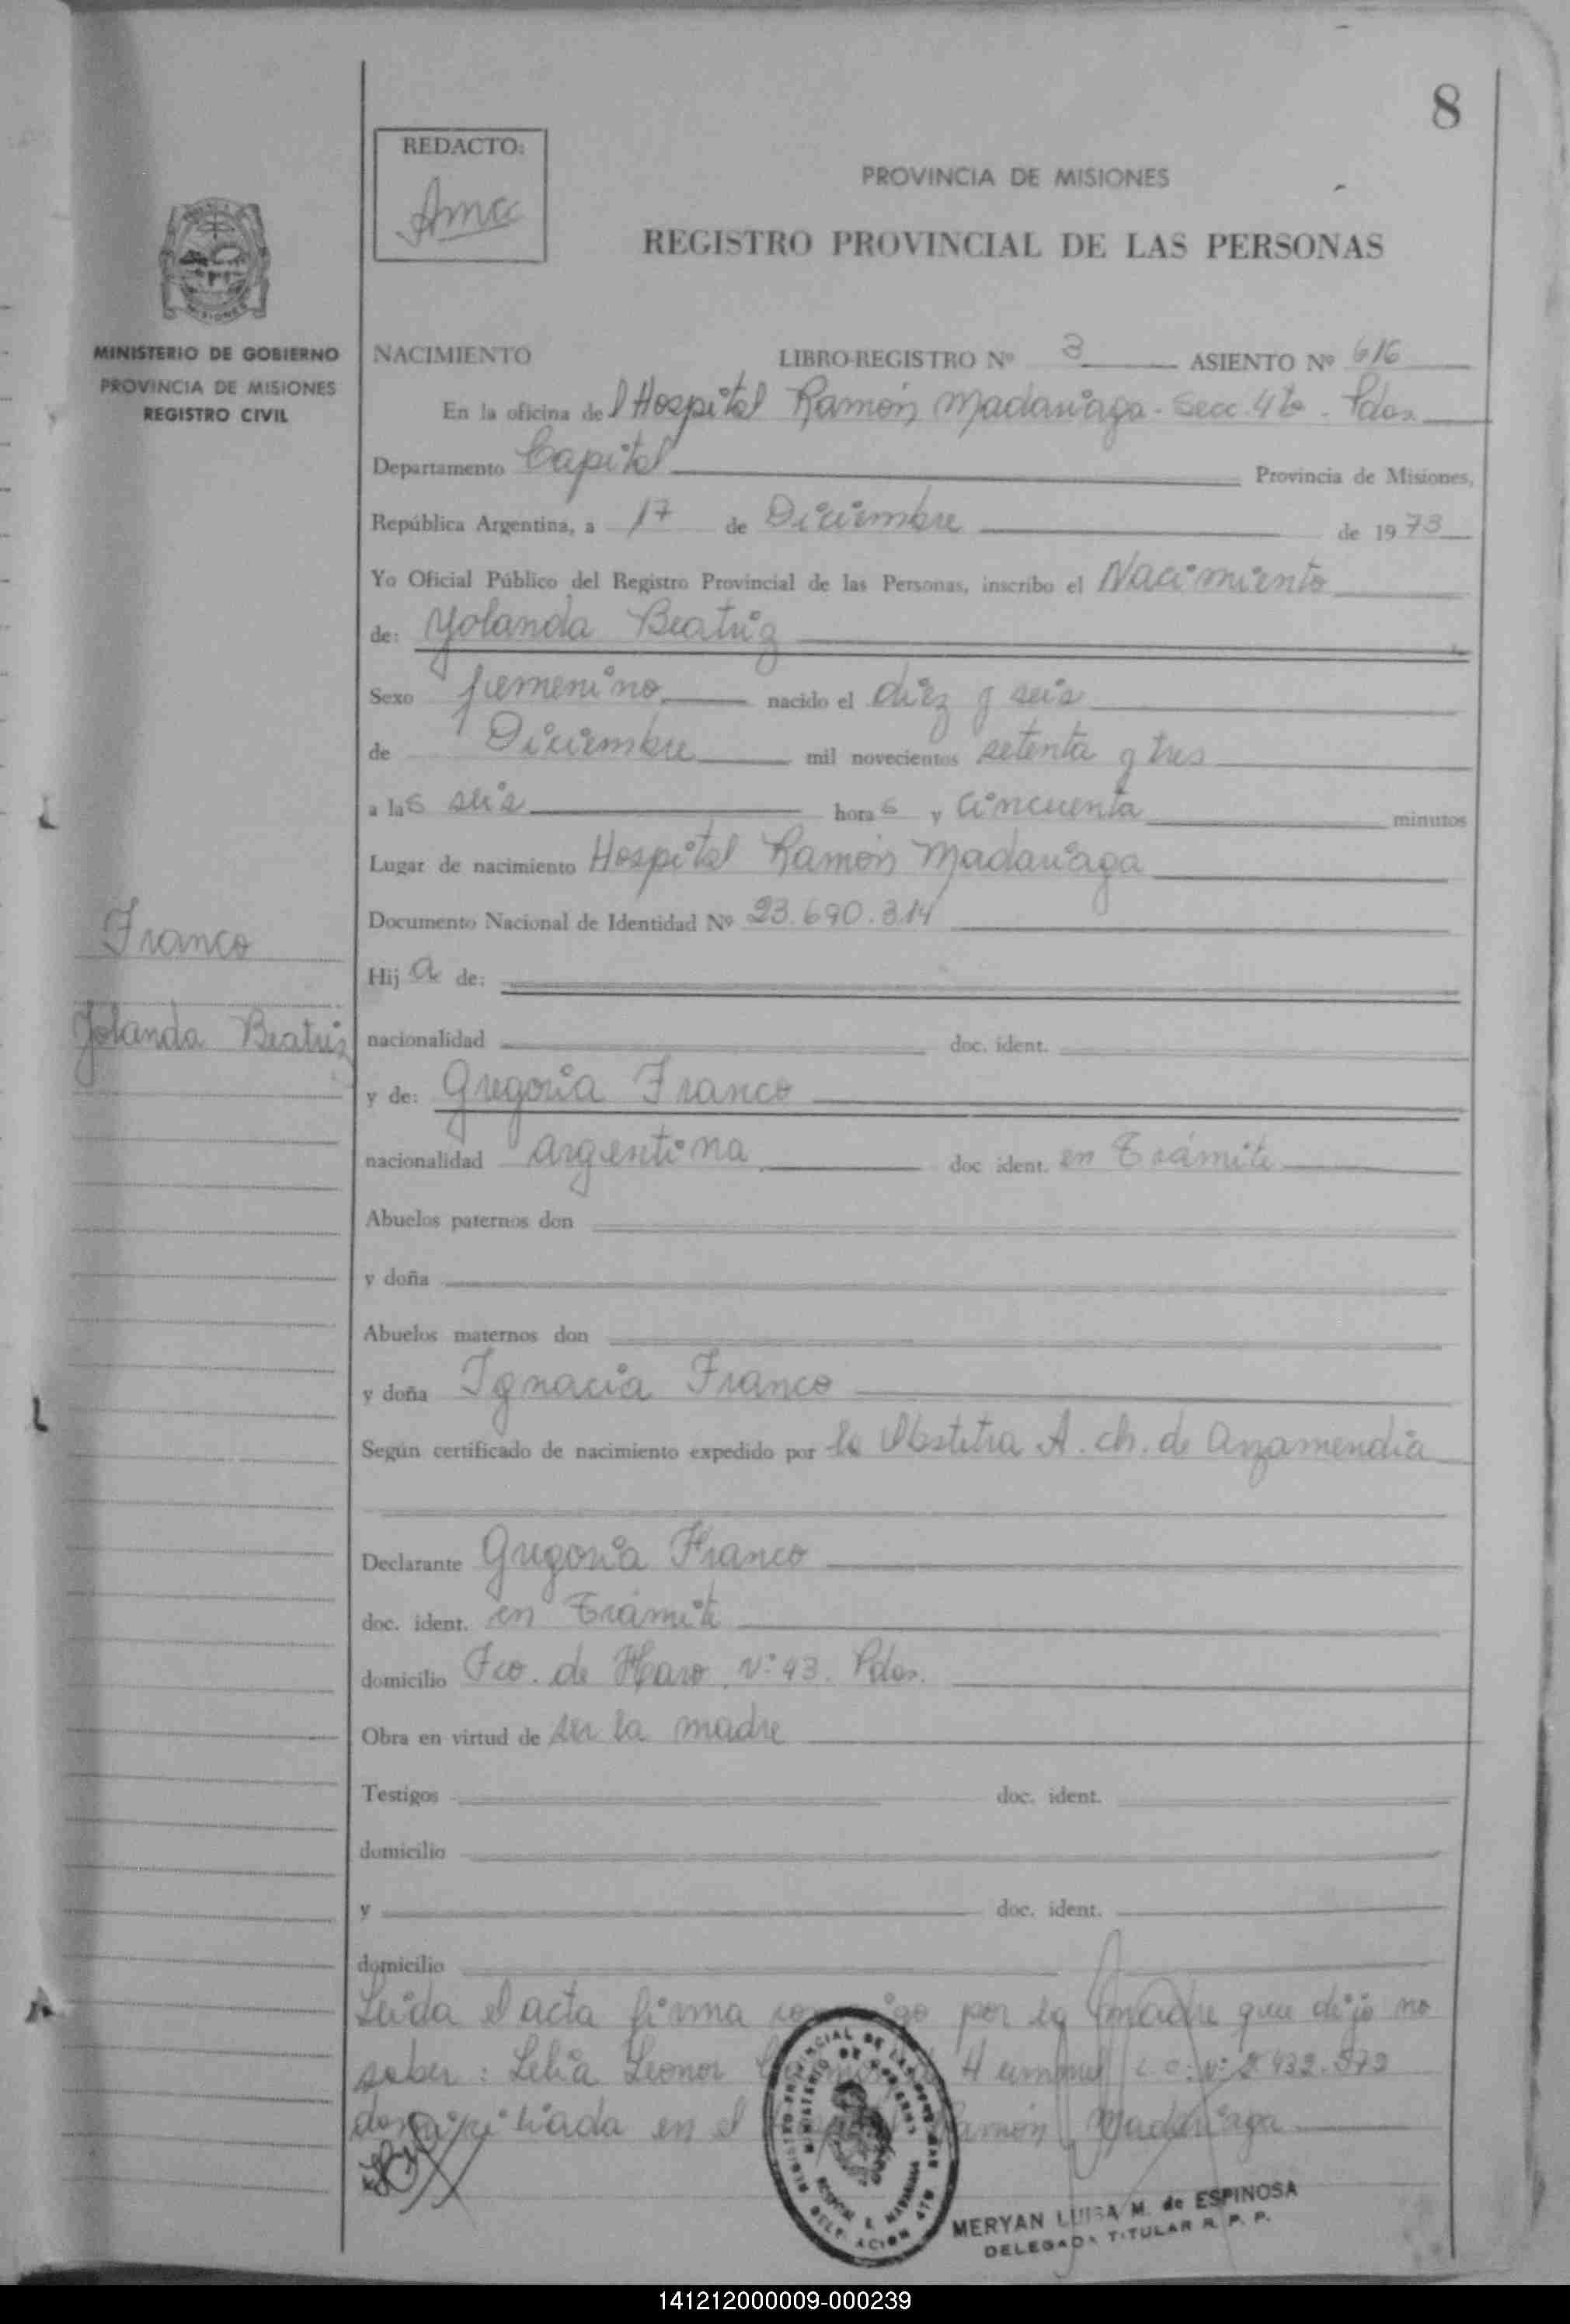 8
REDACTO:
Amcc
PROVINCIA DE MISIONES
REGISTRO PROVINCIAL DE LAS PERSONAS
MISIONES
MINISTERIO DE GOBIERNO
PROVINCIA DE MISIONES
REGISTRO CIVIL
NACIMIENTO LIBRO-REGISTRO Nº 3 ASIENTO Nº 616
En la oficina del Hospital Ramón Madariaga - Secc. 4ta - Pdas.
Departamento Capital Provincia de Misiones,
República Argentina, a 17 de Diciembre de 1973
Yo Oficial Público del Registro Provincial de las Personas, inscribo el Nacimiento
de: Yolanda Beatriz
Sexo femenino nacido el diez y seis
de Diciembre mil novecientos setenta y tres
a las seis horas y cincuenta minutos
Lugar de nacimiento Hospital Ramón Madariaga
Documento Nacional de Identidad Nº 23.690.314
Franco
Hija de:
Yolanda Beatriz
nacionalidad doc. ident.
y de: Gregoria Franco
nacionalidad argentina doc ident. en trámite
Abuelos paternos don
y doña
Abuelos maternos don
y doña Ignacia Franco
Según certificado de nacimiento expedido por la Obstetra A. ch. de Anzamendia
Declarante Gregoria Franco
doc. ident. en trámite
domicilio Fco. de Haro Nº 43. Pdas.
Obra en virtud de ser la madre
Testigos doc. ident.
domicilio
y doc. ident.
domicilio
Leida el acta firma conmigo por la madre que dijo no
saber: Lelia Leonor Hummel L.C. Nº 2.432.572
domiciliada en el Ramón Madariaga
MERYAN LUISA M. de ESPINOSA
DELEGADA TITULAR R. P. P.
141212000009-000239